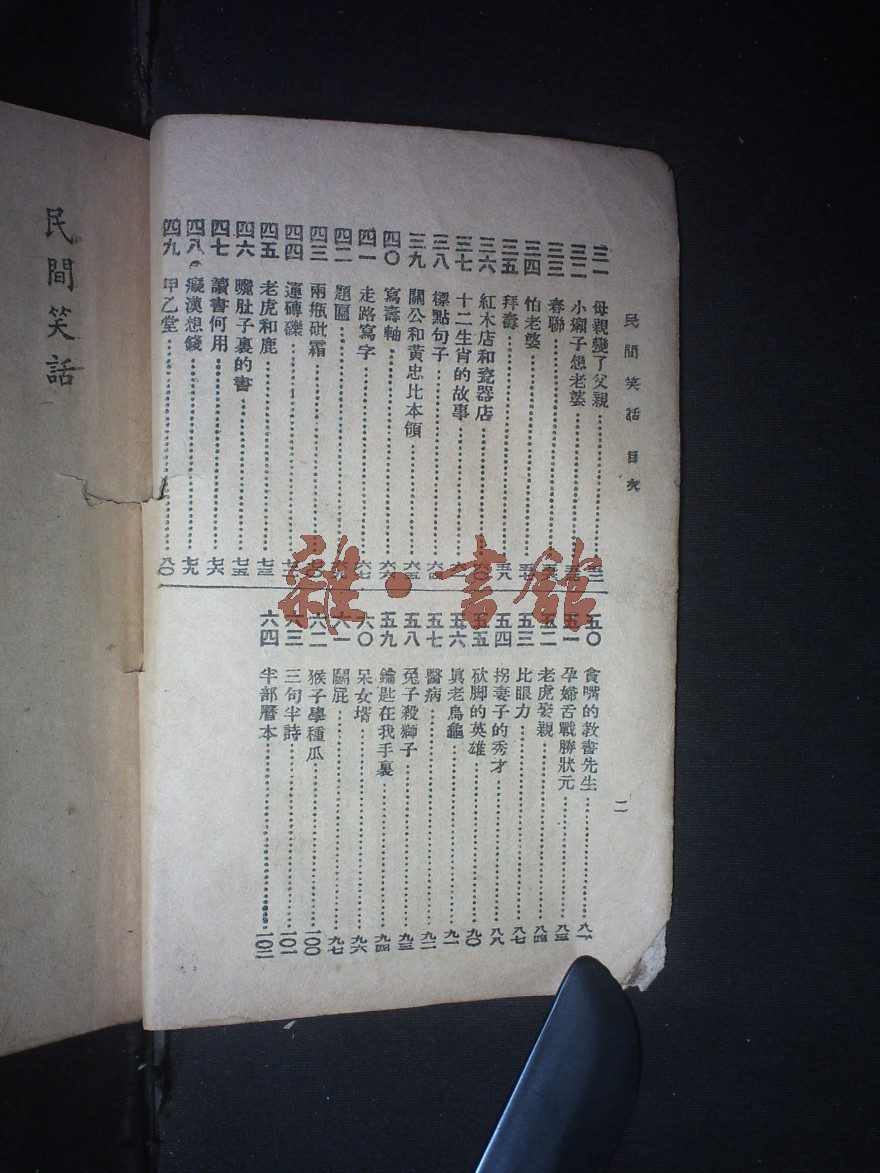 民間笑話 目次
三一 母親變了父親
三二 小癩子想老婆
三三 春聯
三四 怕老婆
三五 拜壽
三六 紅木店和瓷器店
三七 十二生肖的故事
三八 標點句子
三九 關公和黃忠比本領
四〇 寫壽軸
四一 走路寫字
四二 題匾
四三 兩瓶砒霜
四四 運磚礫
四五 老虎和鹿 七三
四六 曬肚子裏的書 七五
四七 讀書何用 七六
四八 癡漢想錢 七九
四九 甲乙堂 八〇
五〇 貪嘴的教書先生 八一
五一 孕婦舌戰勝狀元 八三
五二 老虎娶親 八四
五三 比眼力 八七
五四 拐妻子的秀才 八八
五五 砍脚的英雄 九〇
五六 眞老烏龜 九一
五七 醫病 九二
五八 兔子殺獅子 九三
五九 鑰匙在我手裏 九四
六〇 呆女壻 九六
六一 鬬屁 九七
六二 猴子學種瓜 一〇〇
六三 三句半詩 一〇一
六四 半部曆本 一〇二
二
民間笑話
雜·書館